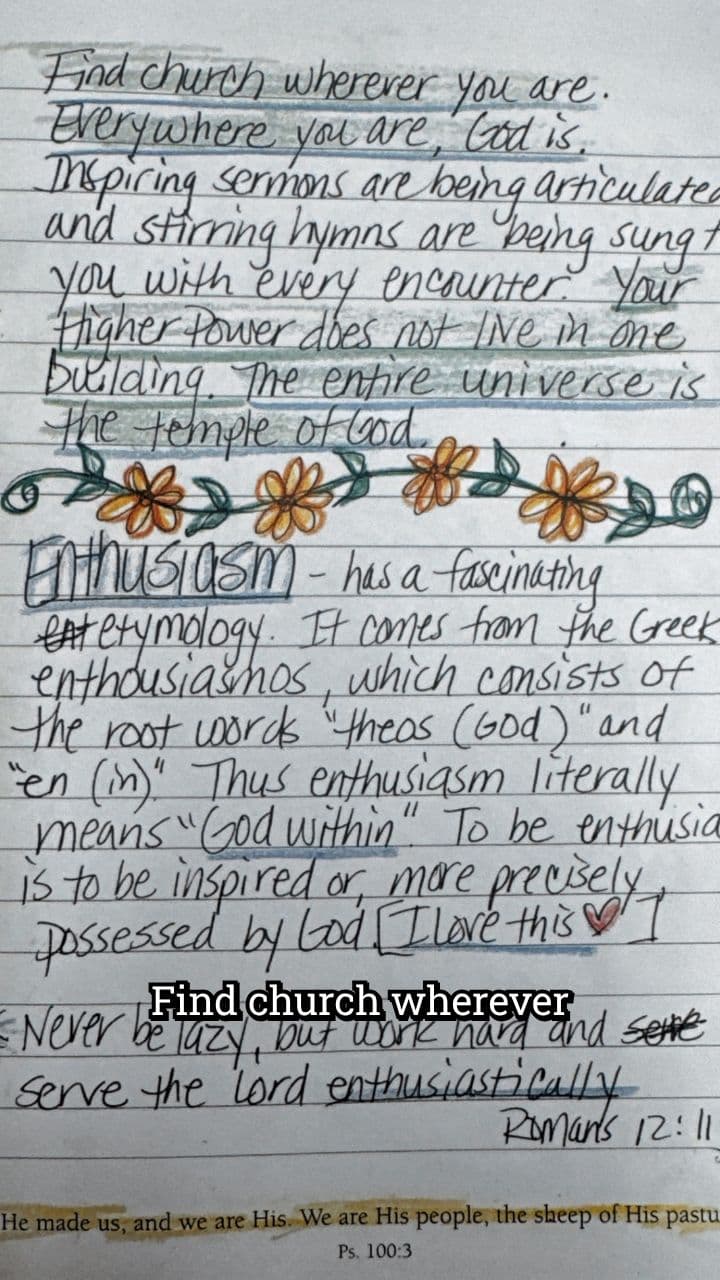 Find church wherever you are.
Everywhere you are, God is.
Inspiring sermons are being articulated
and stirring hymns are being sung t
you with every encounter. Your
Higher Power does not live in one
building. The entire universe is
the temple of God.
Enthusiasm - has a fascinating
etymology. It comes from the Greek
enthousiasmos, which consists of
the root words "theos (God)" and
"en (in)" Thus enthusiasm literally
means "God within". To be enthusia
is to be inspired or, more precisely,
possessed by God. [I love this ]
Find church wherever
Never be lazy, but work hard and serve
serve the Lord enthusiastically
Romans 12:11
He made us, and we are His. We are His people, the sheep of His pastu
Ps. 100:3